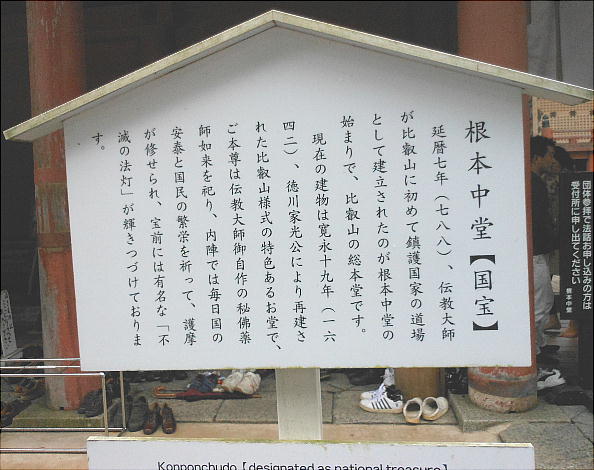 根本中堂【国宝】
延暦七年（七八八）、伝教大師
が比叡山に初めて鎮護国家の道場
として建立されたのが根本中堂の
始まりで、比叡山の総本堂です。
現在の建物は寛永十九年（一六
四二）、徳川家光公により再建さ
れた比叡山様式の特色あるお堂で、
ご本尊は伝教大師御自作の秘佛薬
師如来を祀り、内陣では毎日国の
安泰と国民の繁栄を祈って、護摩
が修せられ、宝前には有名な「不
滅の法灯」が輝きつづけておりま
す。
団体参拝で法話お申し込みの方は
受付所に申し出てください
根本中堂
Konponchudo【designated as national treasure】